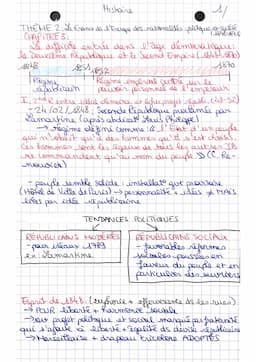 Histoire
THÈME 2: La France dans l'Europe des nationalités: politique et société (1848-1871)
CHAPITRE 3:
La difficile entrée dans l'âge démocratique:
la Deuxième République et le Second Empire (1848-1870)
1848 1851 1852 1870
Régime républicain
Régime impérial fondé sur le pouvoir personnel de l'empereur
I. 2nde R entre idéaux démocra. et (48-52)
- 24/02/1848: Seconde République proclamée par
Lamartine (après abdicat° Louis Philippe)
→ régime défini comme "l'État d'un peuple
qui n'obéit qu'à des hommes qu'il a élu
Ces hommes sont les égaux de tous les autres
ne commandent qu'au nom du peuple" (C. Renouvier)
- peuple semble solide: installat° gvt provisoire
(Hôtel de Ville de Paris) → MAIS
liées par idée républicaine
TENDANCES POLITIQUES
RÉPUBLICAINS MODÉRÉS
- pour idéaux 1789
ex: Lamartine.
RÉPUBLICAINS SOCIAUX
- favorables réformes
sociales poussées en
faveur du peuple et en
particulier des ouvriers
Esprit de 1848: (euphorie + effervescence des rues)
→ POUR liberté + harmonie sociale
→ projet politique et social marqué par fraternité
qui s'ajoute à liberté + égalité ds devise républicaine
→ Marseillaise + drapeau tricolore ADOPTÉS